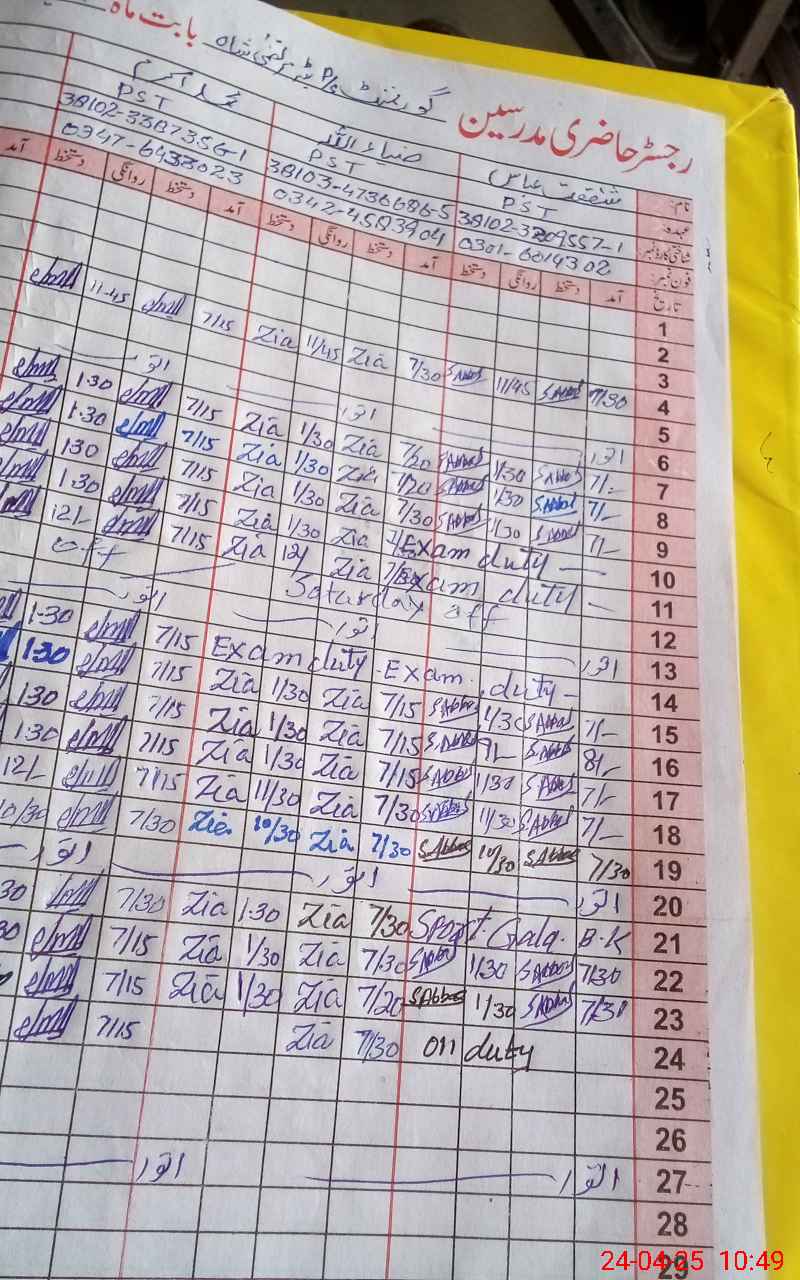 رجسٹر حاضری مدرسین گورنمنٹ P/S بابت ماہ
نام: شفقت عباس ضیاء اللہ محمد اکرم
عہدہ: PST PST PST
شناختی کارڈ نمبر: 38102-3209557-1 38103-4736686-5 38102-3387356-1
فون نمبر: 0301-6014302 0342-4583904
تاریخ آمد دستخط روانگی دستخط آمد دستخط روانگی دستخط آمد دستخط روانگی دستخط آمد
1
2
3 7/30 S.Abbas 11/45 S.Abbas 7/30 Zia 11/45 Zia 7/15 11-45
4
5
6 اتوار اتوار اتوار
7 7/- S.Abbas 1/30 S.Abbas 7/30 Zia 1/30 Zia 7/15 1-30
8 7/- S.Abbas 1/30 S.Abbas 7/20 Zia 1/30 Zia 7/15 1-30
9 7/- S.Abbas 1/30 S.Abbas 7/30 Zia 1/30 Zia 7/15 130
10 Exam duty Zia 1/30 Zia 7/15 1-30
11 Exam duty Zia 12/ Zia 7/15 12/-
12 Saturday off off
13 اتوار اتوار اتوار
14 Exam duty - Exam duty 7/15 1-30
15 7/- S.Abbas 1/30 S.Abbas 7/15 Zia 1/30 Zia 7/15 1-30
16 8/- S.Abbas 9/- S.Abbas 7/15 Zia 1/30 Zia 7/15 130
17 7/- S.Abbas 1/30 S.Abbas 7/15 Zia 1/30 Zia 7/15 1-30
18 7/- S.Abbas 11/30 S.Abbas 7/30 Zia 11/30 Zia 7/15 12/-
19 7/30 S.Abbas 10/30 S.Abbas 7/30 Zia 10/30 Zia 7/30 10/30
20 اتوار اتوار اتوار
21 Sport. Gala. B.K 7/30 Zia 1-30 Zia 7/30 30
22 7/30 S.Abbas 1/30 S.Abbas 7/30 Zia 1/30 Zia 7/15 30
23 7/30 S.Abbas 1/30 S.Abbas 7/20 Zia 1/30 Zia 7/15
24 on duty 7/30 Zia 7/15
25
26
27 اتوار اتوار
28
29
24-04-25 10:49